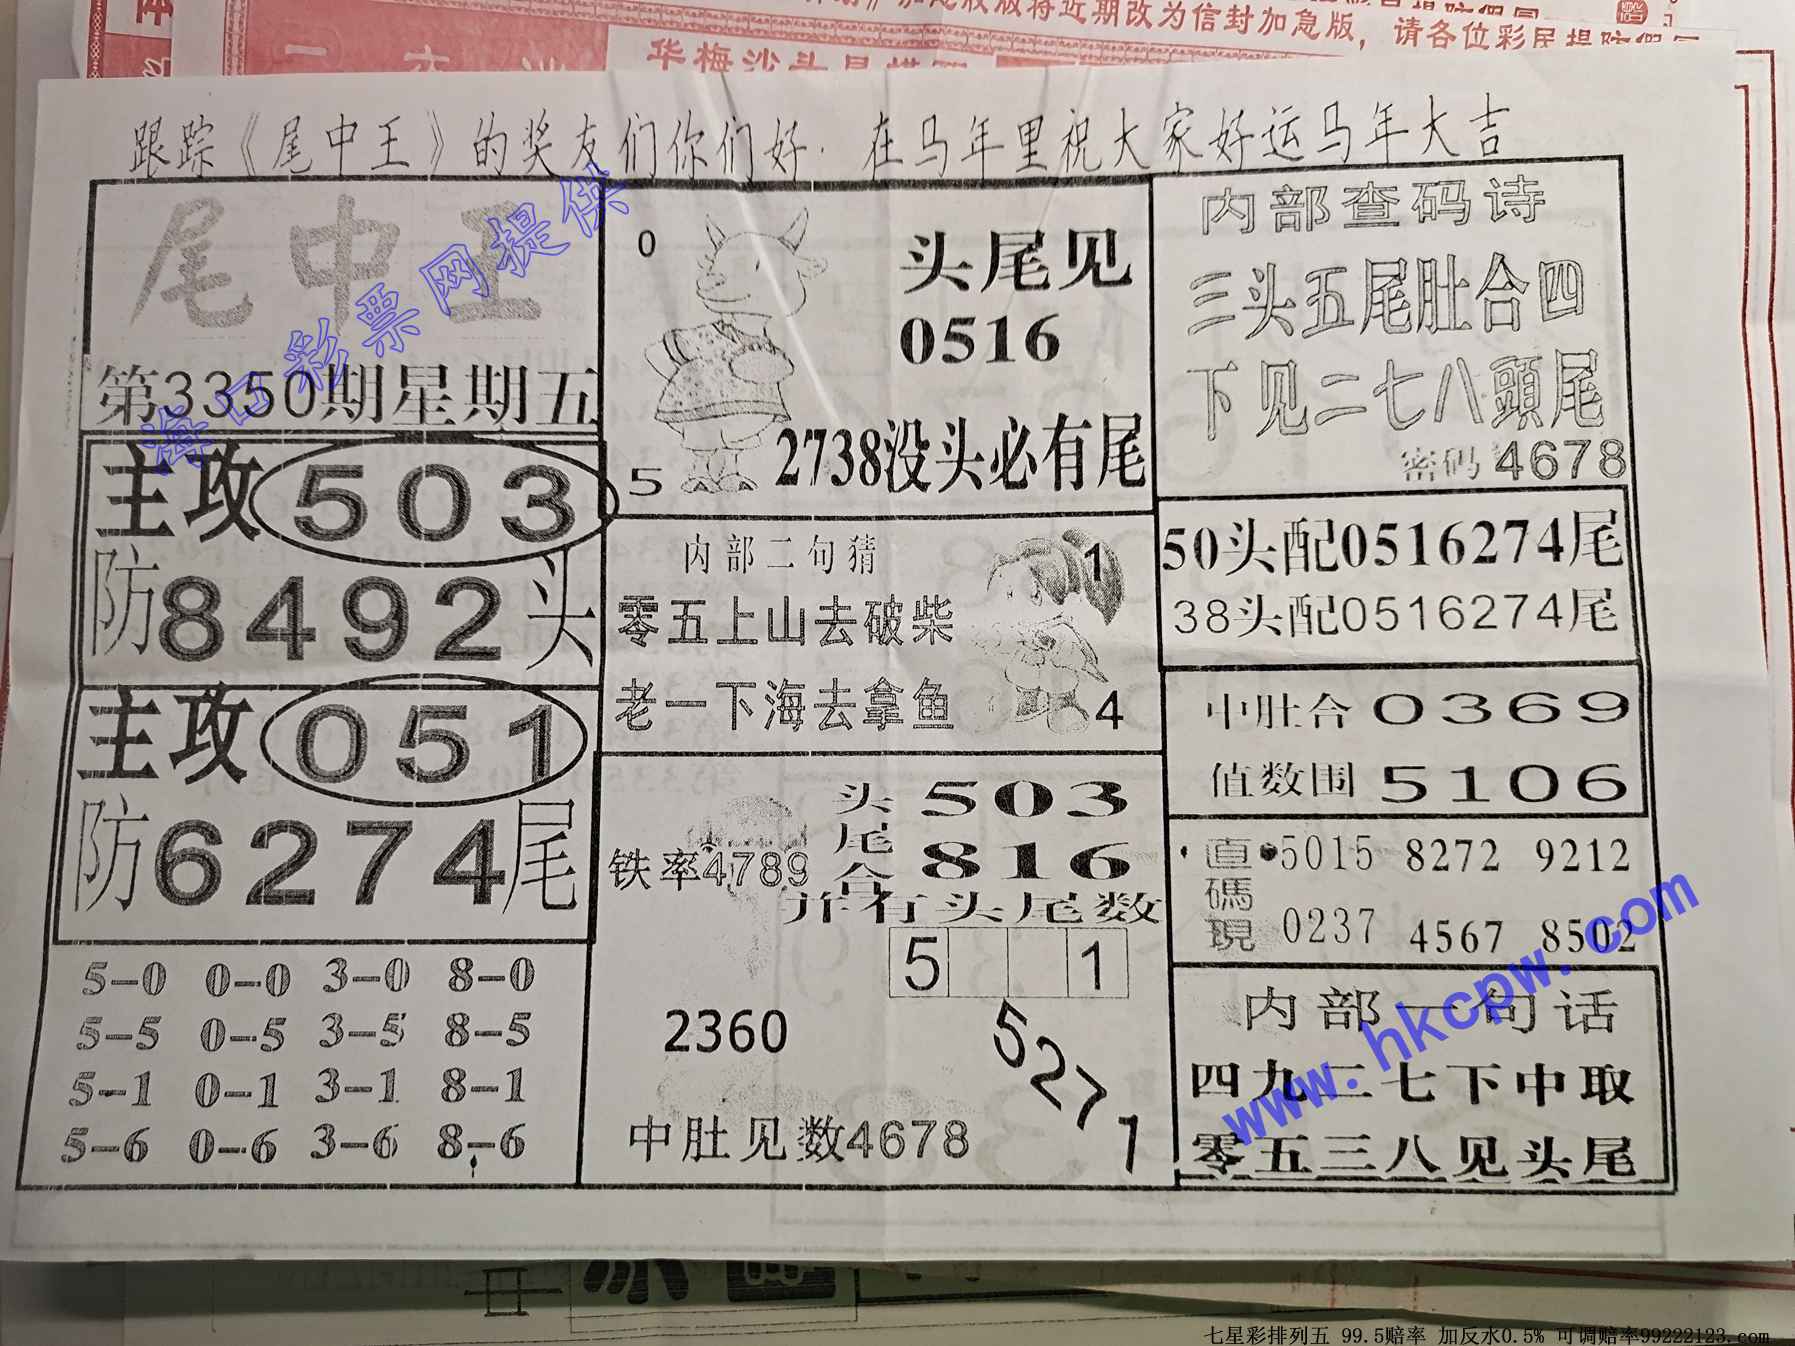 加急版版将近期改为信封加急版，请各位彩民提防假冒
华梅沙头
跟踪《尾中王》的奖友们你们好．在马年里祝大家好运马年大吉
尾中王
第3350期星期五
主攻503
防8492头
主攻051
防6274尾
5-0 0-0 3-0 8-0
5-5 0-5 3-5 8-5
5-1 0-1 3-1 8-1
5-6 0-6 3-6 8-6
0
头尾见
0516
5
2738没头必有尾
内部二句猜
1
零五上山去破柴
老一下海去拿鱼
4
头 503
尾
合 816
铁率4789
并有头尾数
5 1
2360
5271
中肚见数4678
内部查码诗
三头五尾肚合四
下见二七八頭尾
密码4678
50头配0516274尾
38头配0516274尾
中肚合0369
值数围5106
直碼現
5015 8272 9212
0237 4567 8502
内部一句话
四九二七下中取
零五三八见头尾
海口彩票网提供
www.hkcpw.com
七星彩排列五 99.5赔率 加反水0.5% 可调赔率99222123.com